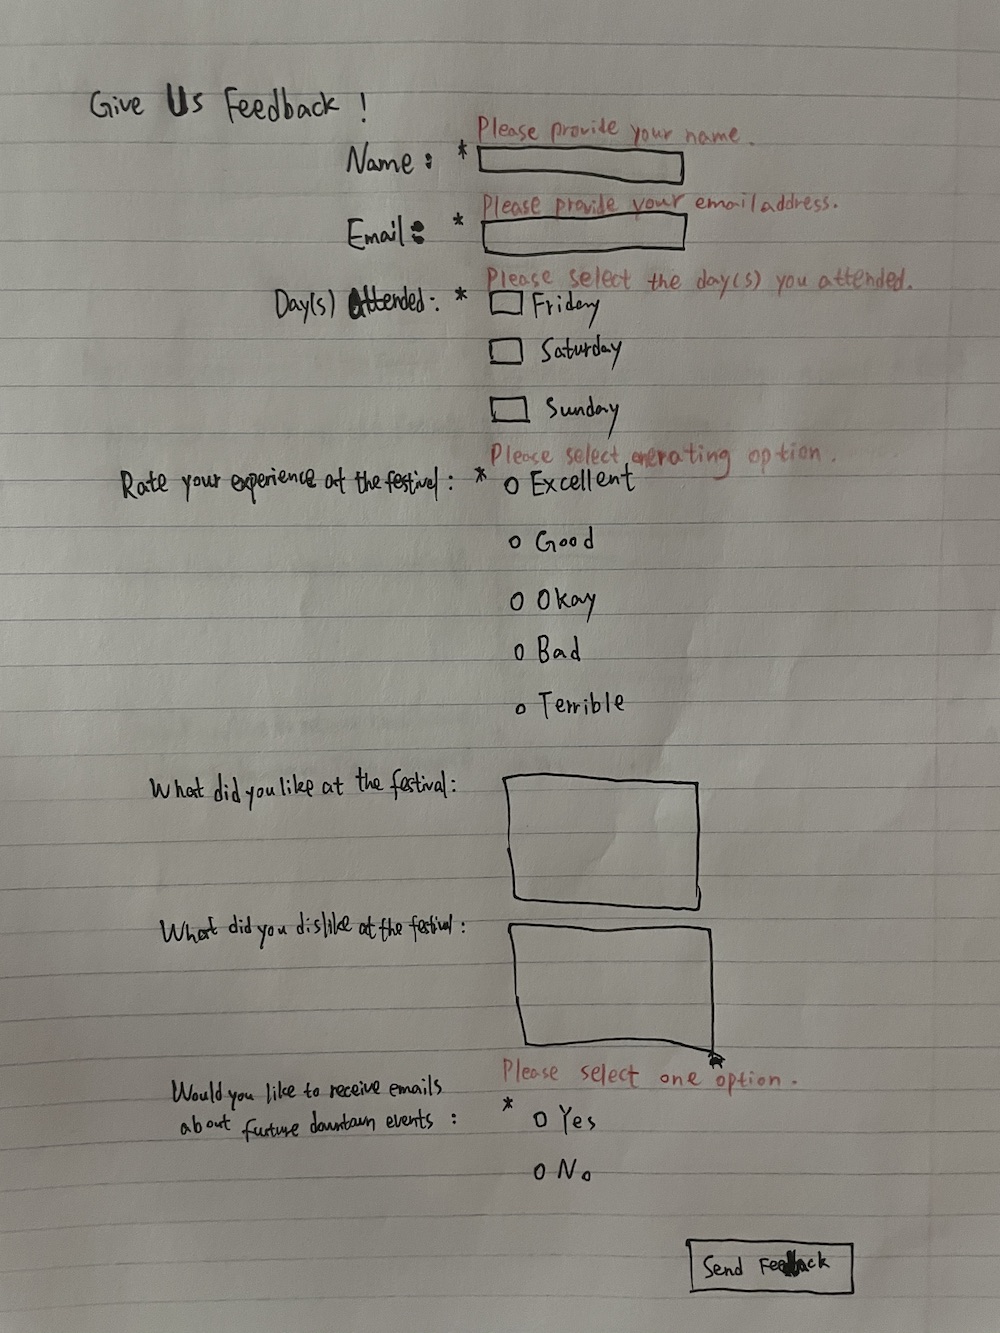 Give Us Feedback !
Please provide your name.
Name : *
Please provide your email address.
Email : *
Please select the day(s) you attended.
Day(s) Attended : * Friday
Saturday
Sunday
Please select one rating option.
Rate your experience at the festival : * Excellent
Good
Okay
Bad
Terrible
What did you like at the festival :
What did you dislike at the festival :
Please select one option.
Would you like to receive emails
about furture downtown events : * Yes
No
Send Feedback